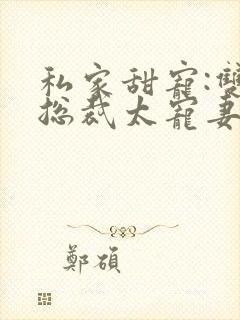 私家甜寵:雙
總裁太寵妻
鄭碩